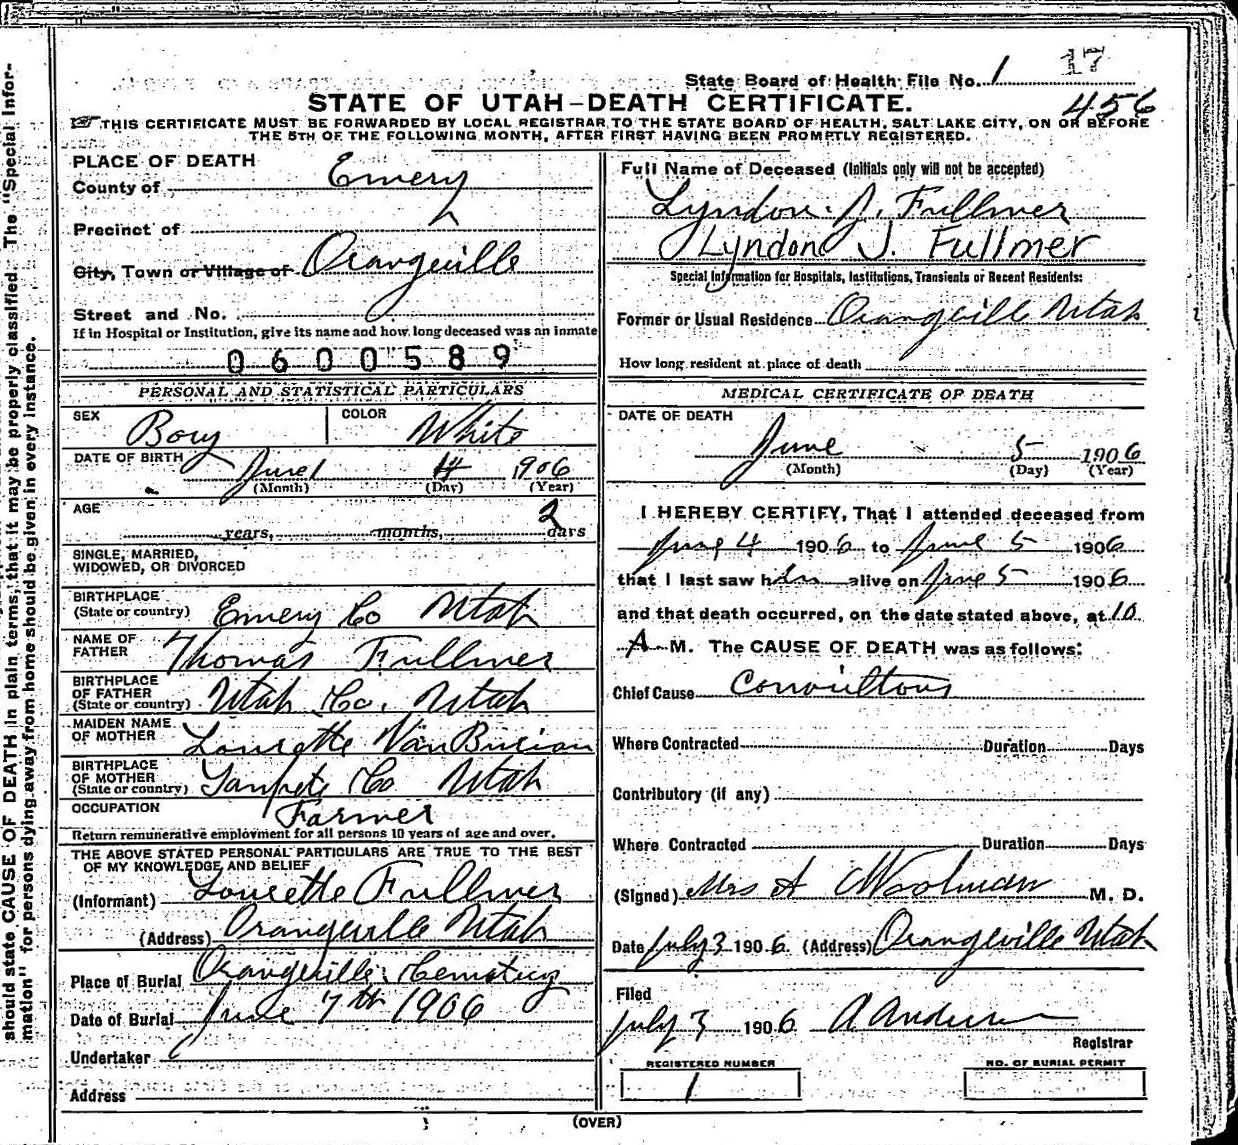 State Board of Health File No. 1 17
456
STATE OF UTAH-DEATH CERTIFICATE.
THIS CERTIFICATE MUST BE FORWARDED BY LOCAL REGISTRAR TO THE STATE BOARD OF HEALTH, SALT LAKE CITY, ON OR BEFORE
THE 5TH OF THE FOLLOWING MONTH, AFTER FIRST HAVING BEEN PROMPTLY REGISTERED.
PLACE OF DEATH
County of Emery
Precinct of
City, Town or Village of Orangeville
Street and No.
If in Hospital or Institution, give its name and how long deceased was an inmate
0600589
PERSONAL AND STATISTICAL PARTICULARS
SEX Boy COLOR White
DATE OF BIRTH June 4 1906
(Month) (Day) (Year)
AGE
years, months, 2 days
SINGLE, MARRIED,
WIDOWED, OR DIVORCED
BIRTHPLACE
(State or country) Emery Co Utah
NAME OF
FATHER Thomas Fullmer
BIRTHPLACE
OF FATHER
(State or country) Utah Co. Utah
MAIDEN NAME
OF MOTHER
BIRTHPLACE
OF MOTHER
(State or country) Sanpete Co Utah
OCCUPATION Farmer
Return remunerative employment for all persons 10 years of age and over.
THE ABOVE STATED PERSONAL PARTICULARS ARE TRUE TO THE BEST
OF MY KNOWLEDGE AND BELIEF
(Informant) Lourette Fullmer
(Address) Orangeville Utah
Place of Burial Orangeville Cemetery
Date of Burial June 7th 1906
Undertaker
Address
Full Name of Deceased (Initials only will not be accepted)
Lyndon J. Fullmer
Lyndon J. Fullmer
Special Information for Hospitals, Institutions, Transients or Recent Residents:
Former or Usual Residence Orangeville Utah
How long resident at place of death
MEDICAL CERTIFICATE OF DEATH
DATE OF DEATH
June 5 1906
(Month) (Day) (Year)
I HEREBY CERTIFY, That I attended deceased from
June 4 1906 to June 5 1906
that I last saw him alive on June 5 1906
and that death occurred, on the date stated above, at 10
A M. The CAUSE OF DEATH was as follows:
Chief Cause
Where Contracted Duration Days
Contributory (if any)
Where Contracted Duration Days
(Signed) Mrs A Woolman M. D.
Date July 3 1906. (Address) Orangeville Utah
Filed
July 3 1906 A Anderson
Registrar
REGISTERED NUMBER
1
NO. OF BURIAL PERMIT
(OVER)
should state CAUSE OF DEATH in plain terms, that it may be properly classified. The "Special Infor-
mation" for persons dying away from home should be given in every instance.